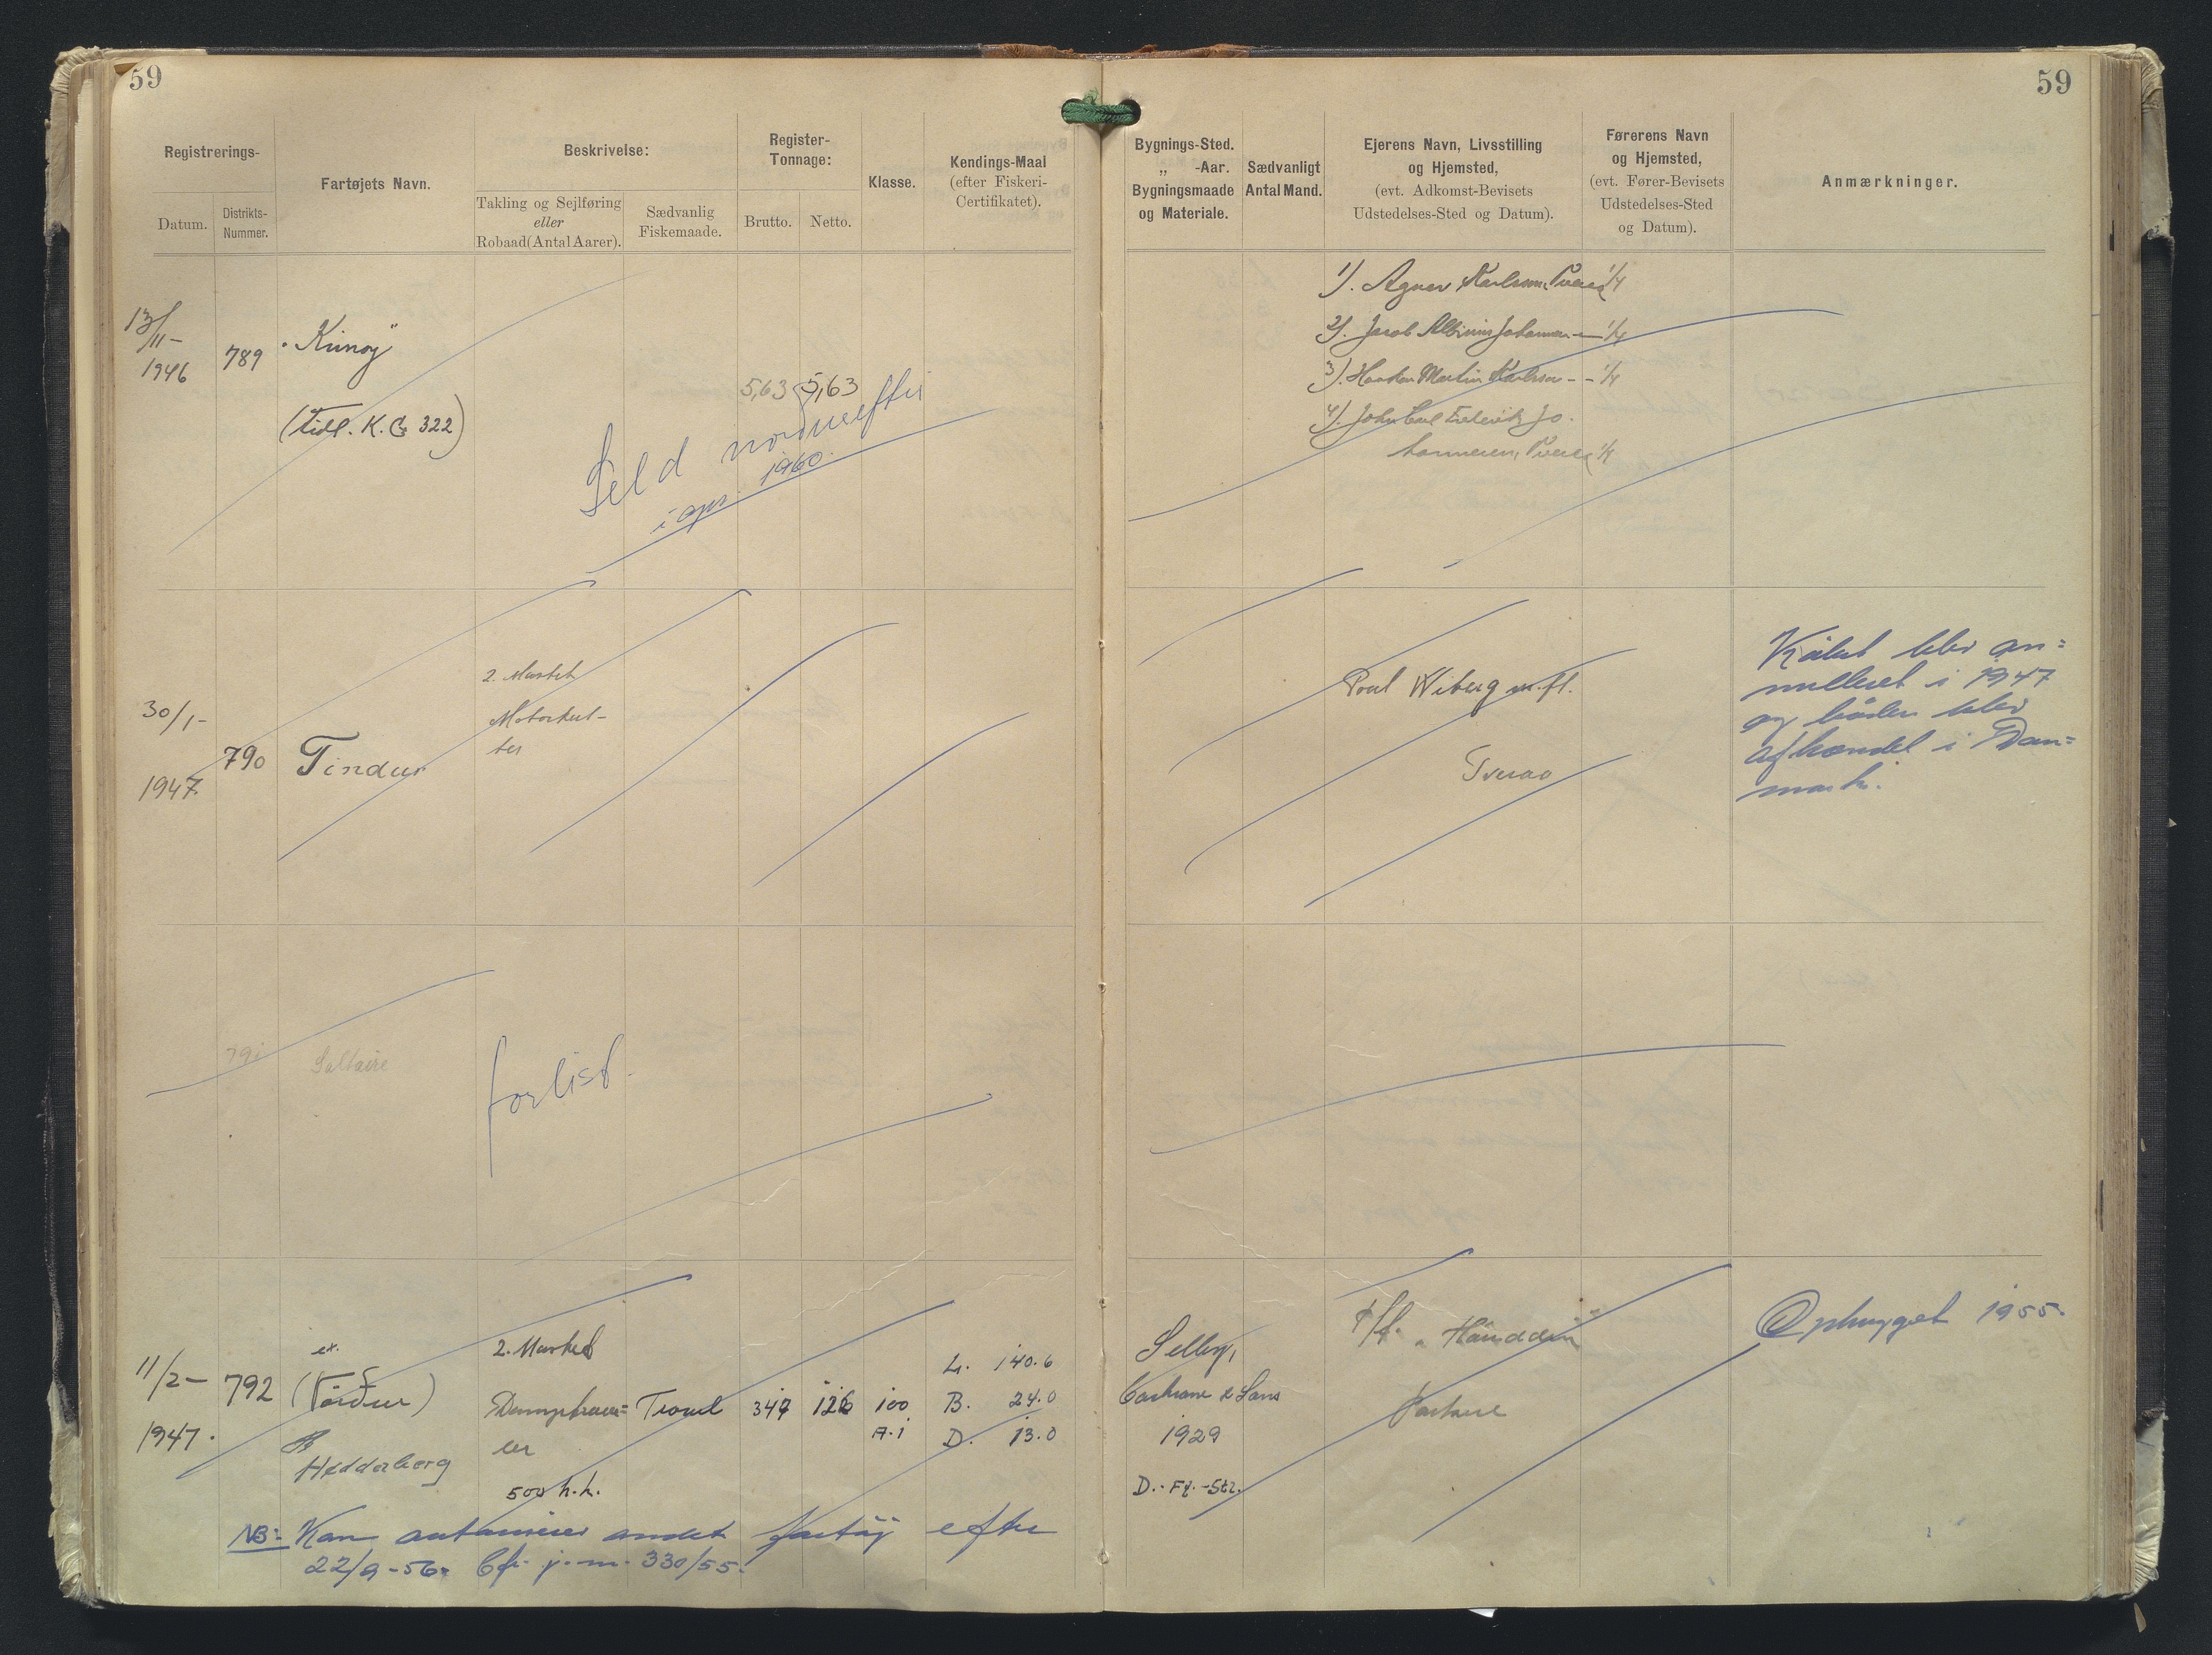 59
59
Registrerings-
Datum.
Distrikts-
Nummer.
Fartøjets Navn.
Beskrivelse:
Takling og Sejlføring
eller
Robaad (Antal Aarer).
Sædvanlig
Fiskemaade.
Register-
Tonnage:
Brutto.
Netto.
Klasse.
Kendings-Maal
(efter Fiskeri-
Certifikatet).
Bygnings-Sted.
„ -Aar.
Bygningsmaade
og Materiale.
Sædvanligt
Antal Mand.
Ejerens Navn, Livsstilling
og Hjemsted,
(evt. Adkomst-Bevisets
Udstedelses-Sted og Datum).
Førerens Navn
og Hjemsted,
(evt. Fører-Bevisets
Udstedelses-Sted
og Datum).
Anmærkninger.
13/11-
1946
789
"Kunoy"
(tidl. K.G. 322)
5,63 5,63
Seld norðureftir
í apr. 1960.
1). Agnar Karlsen, 1/4
2). Jacob Johannesen - 1/4
3). Martin Karlsen - - 1/4
4). John Carl Frederik Jo-
hannesen, 1/4
30/1-
1947.
790
Tindur
2. Mastet
Motorkut-
ter
Poul Wiberg m.fl.
Tveraa
blev an=
nulleret i 1947
og båden blev
afhændet i Dan=
mark.
791
Saltaire
forlist.
11/2-
1947.
792
ex.
(Norður)
Heddaberg
2. Mastet
Damptraw=
ler
500 h.k.
Trawl
347
126
100
A.1
L. 140.6
B. 24.0
D. 13.0
Selby,
Cochrane & Sons
1929
D.-Fy.-Stl.
P/f.
Ophugget 1955.
NB:- Kan andet fartöj efter
22/9-56. Cfr. j.nr. 330/55.